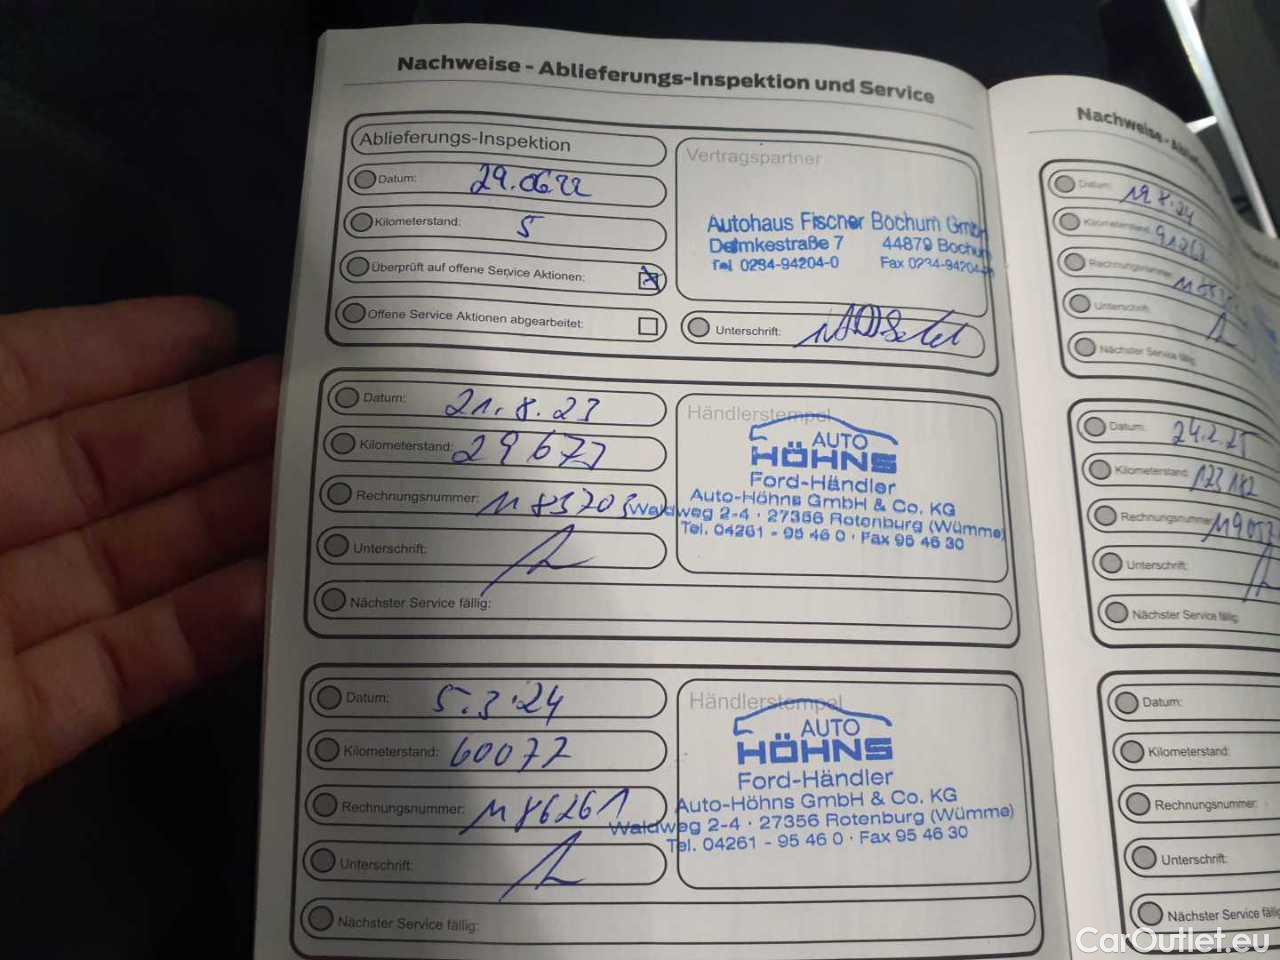 Nachweise - Ablieferungs-Inspektion und Service
Ablieferungs-Inspektion
Datum: 29.06.22
Kilometerstand: 5
Überprüft auf offene Service Aktionen:
Offene Service Aktionen abgearbeitet:
Vertragspartner
Autohaus Fischer Bochum GmbH
Delmkestraße 7 44879 Bochum
Tel. 0234-94204-0 Fax 0234-94204
Unterschrift:
Datum: 21.8.23
Kilometerstand: 29677
Rechnungsnummer: 1183703
Unterschrift:
Nächster Service fällig:
Händlerstempel
AUTO
HÖHNS
Ford-Händler
Auto-Höhns GmbH & Co. KG
Waldweg 2-4 · 27356 Rotenburg (Wümme)
Tel. 04261 - 95 46 0 · Fax 95 46 30
Datum: 5.3.24
Kilometerstand: 60077
Rechnungsnummer: 1186261
Unterschrift:
Nächster Service fällig:
Händlerstempel
AUTO
HÖHNS
Ford-Händler
Auto-Höhns GmbH & Co. KG
Waldweg 2-4 · 27356 Rotenburg (Wümme)
Tel. 04261 - 95 46 0 · Fax 95 46 30
Nachweise -
Datum: 19.8.24
Kilometerstand:
Rechnungsnummer:
Unterschrift:
Nächster Service fällig:
Datum: 24.2.25
Kilometerstand: 123182
Rechnungsnummer:
Unterschrift:
Nächster Service fällig:
Datum:
Kilometerstand:
Rechnungsnummer:
Unterschrift:
Nächster Service fällig
CarOutlet.eu